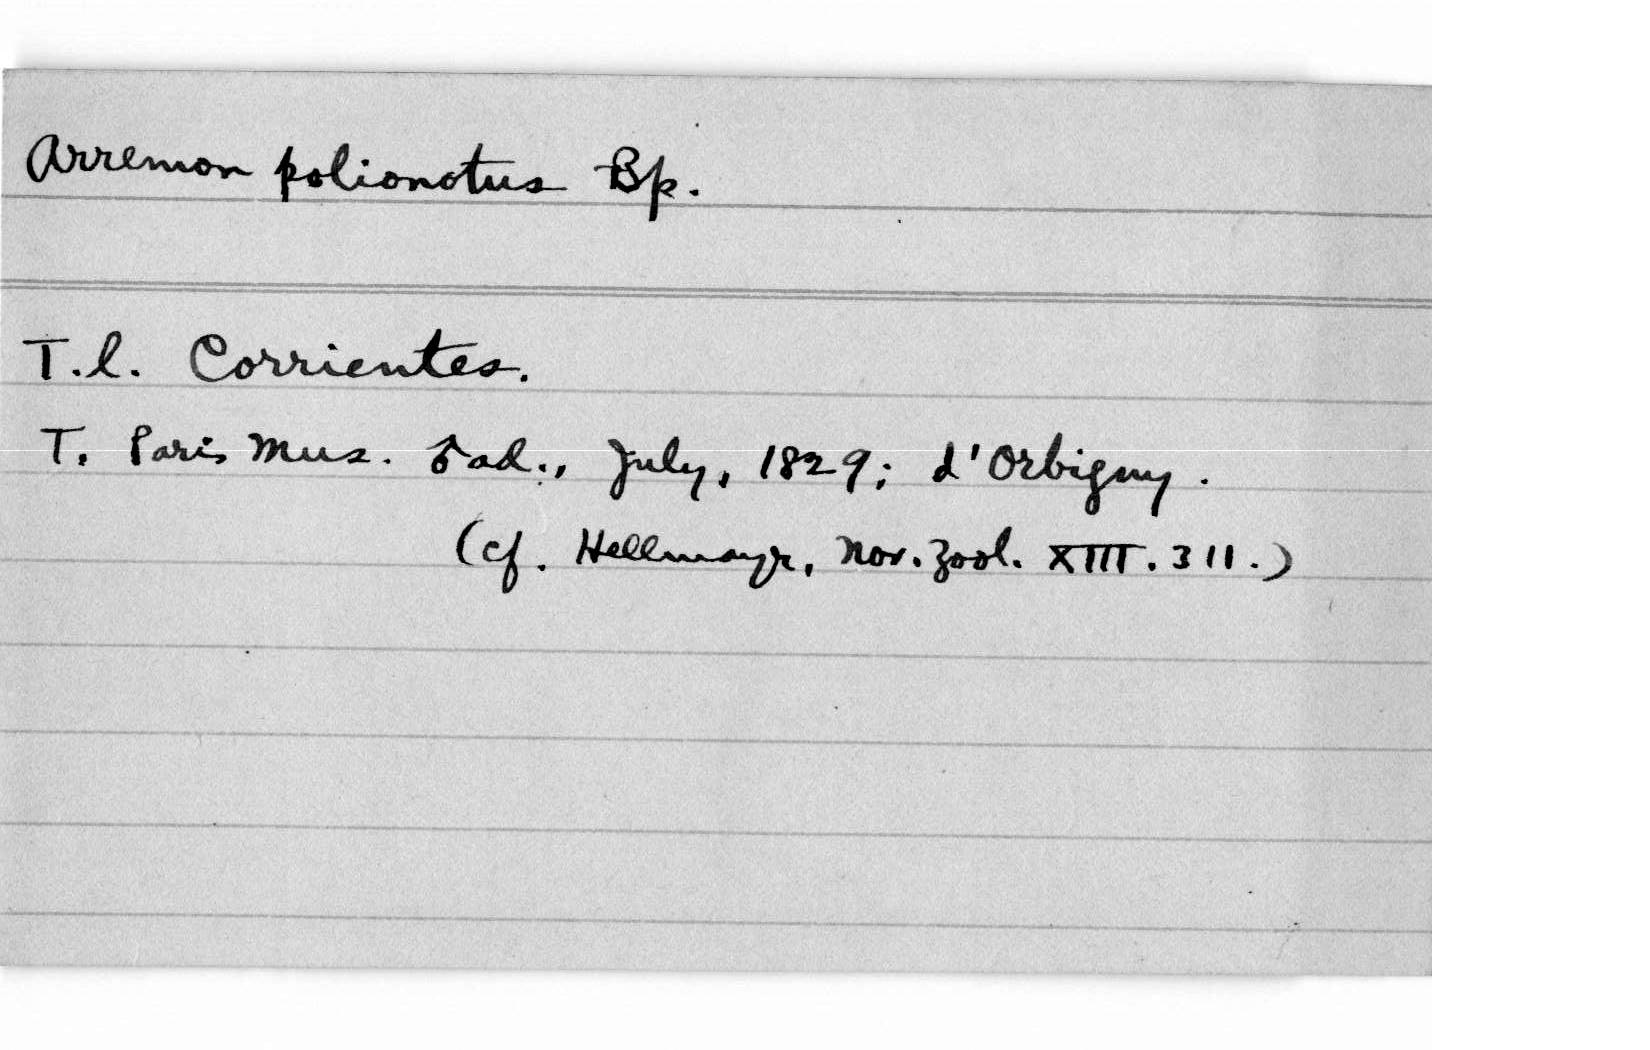 Arremon polionotus Bp.
T.l. Corrientes.
T. Paris Mus. ♂ ad., July, 1829; d'Orbigny.
(cf. Hellmayr, Nov. Zool. XIII. 311.)